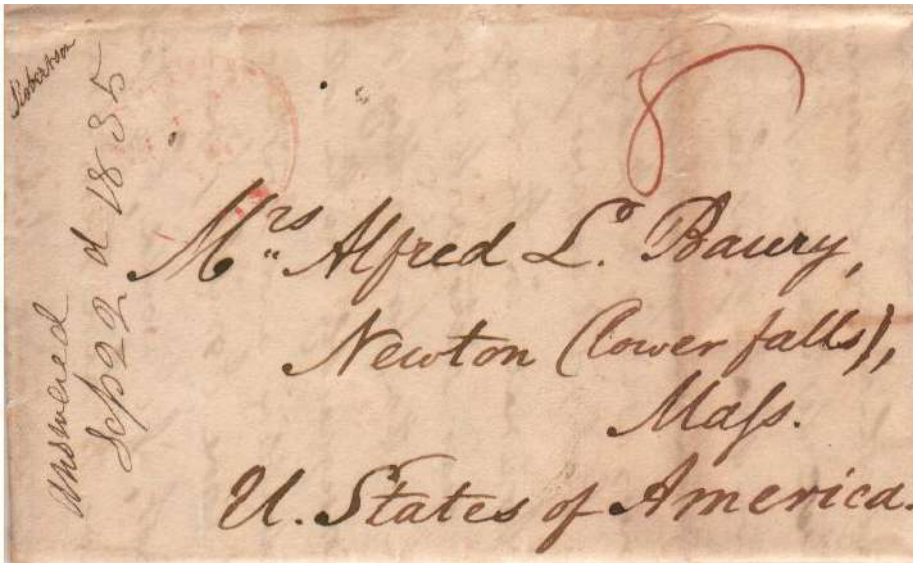 Robertson
Answered
Sep 22 d 1835
8
Mrs Alfred L. Baury,
Newton (lower falls),
Maſs.
U. States of America.